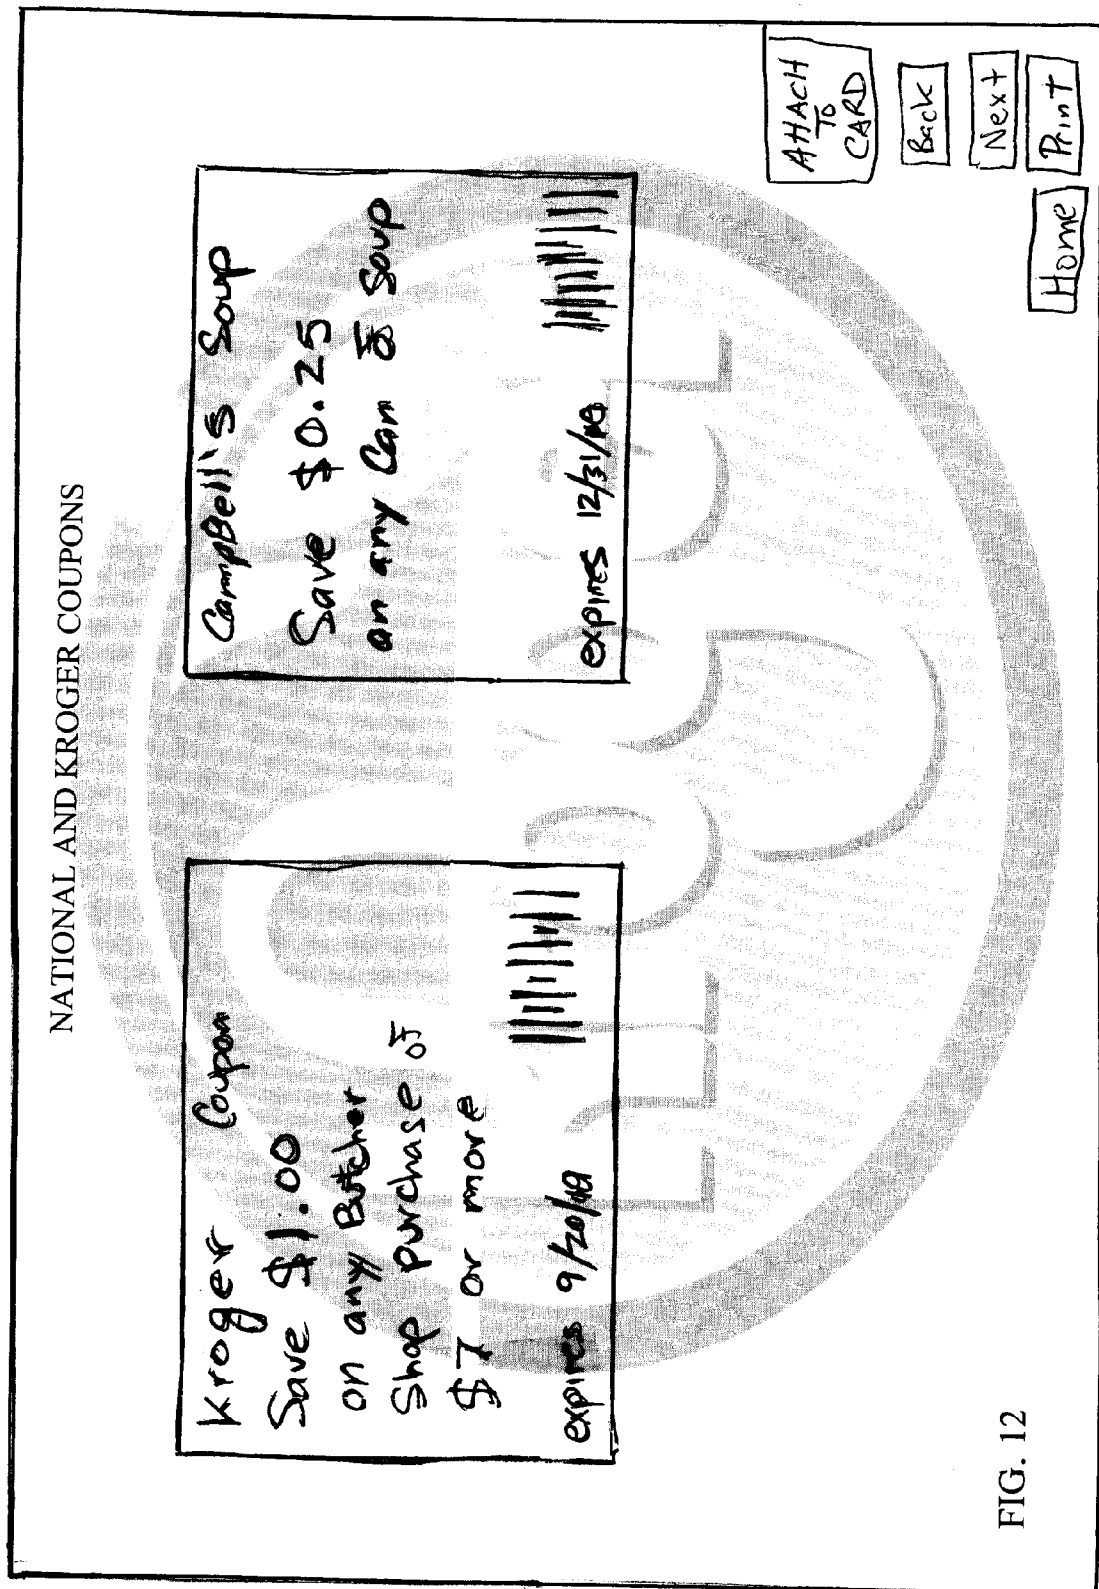 NATIONAL AND KROGER COUPONS
Kroger Coupon
Save $1.00
on any Butcher
Shop purchase of
$7 or more
expires 9/20/
CampBell's Soup
Save $0.25
on any Can of Soup
expires 12/31/
ATTACH
TO
CARD
Back
Next
Home
Print
FIG. 12